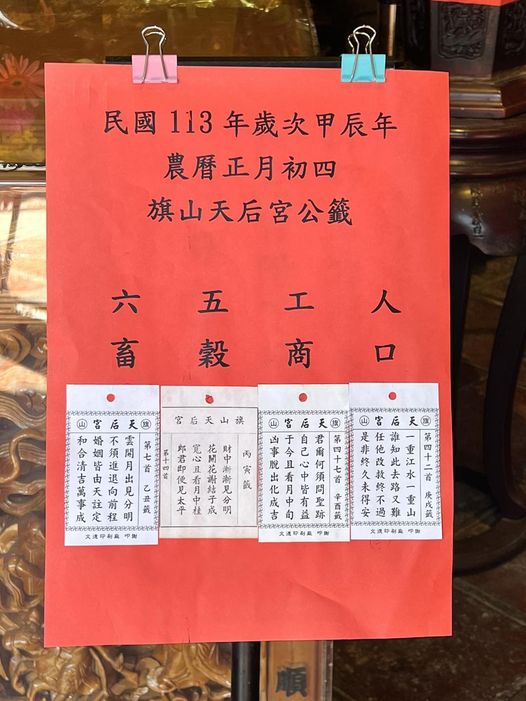 民國113年歲次甲辰年
農曆正月初四
旗山天后宮公籤
人口
工商
五穀
六畜
旗 天后宮 山
第四十二首 庚戌籤
一重江水一重山
誰知此去路又難
任他改救終不過
是非終久未得安
文進印刷廠 叩謝
旗 天后宮 山
第四十七首 辛酉籤
君爾何須問聖跡
自己心中皆有益
于今且看月中旬
凶事脫出化成吉
文進印刷廠 叩謝
旗山天后宮
丙寅籤
財中漸漸見分明
花開花謝結子成
寬心且看月中桂
郎君即便見太平
第十四首
旗 天后宮 山
第七首 乙丑籤
雲開月出見分明
不須進退向前程
婚姻皆由天註定
和合清吉萬事成
文進印刷廠 叩謝
順